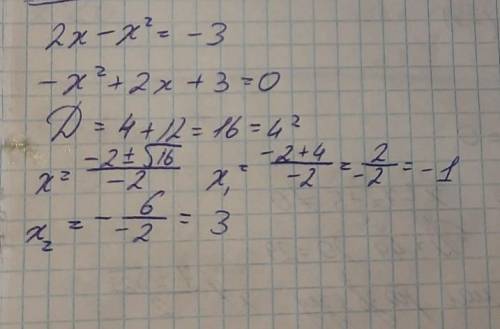 2x - x² = -3
-x² + 2x + 3 = 0
D = 4 + 12 = 16 = 4²
x = (-2 ± √16)/(-2) x₁ = (-2+4)/(-2) = 2/(-2) = -1
x₂ = -6/(-2) = 3